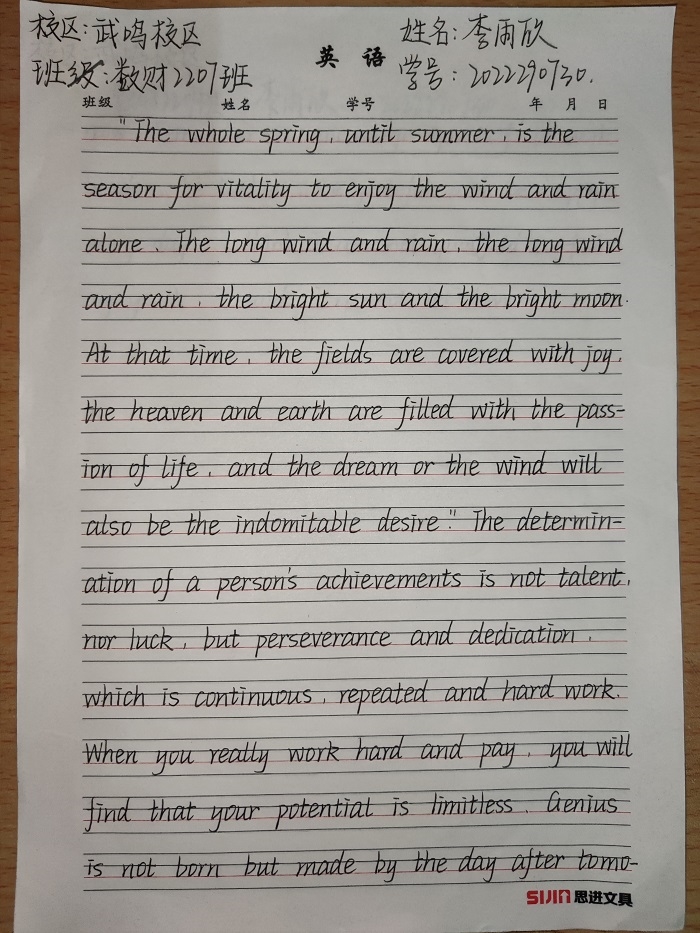 校区:武鸣校区
姓名:李雨欣
英 语
班级:数财2207班
学号:2022290730.
班级 姓名 学号 年 月 日
"The whole spring, until summer, is the
season for vitality to enjoy the wind and rain
alone. The long wind and rain, the long wind
and rain, the bright sun and the bright moon.
At that time, the fields are covered with joy,
the heaven and earth are filled with the pass-
ion of life, and the dream or the wind will
also be the indomitable desire." The determin-
ation of a person's achievements is not talent,
nor luck, but perseverance and dedication,
which is continuous, repeated and hard work.
When you really work hard and pay, you will
find that your potential is limitless. Genius
is not born but made by the day after tomo-
SIJIN 思进文具